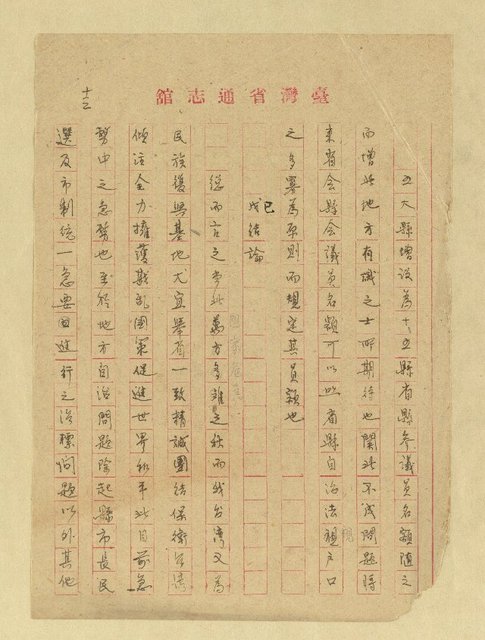 臺灣省通志館
十三
五大縣增設為十五縣省縣參議員名額隨之
而增此地方有識之士所期待也関此不成問題將
來省会縣会議員名額可以照省縣自治法視戶口
之多寡為原則而規定其員額也
已 戊 結論
總而言之當此萬方多難之秋而我台灣又為
民族復興基地尤宜舉省一致精誠團結保衛台湾
傾注全力擁護戡乱國策促進世界和平此目前急
務中之急務也至於地方自治問題除起縣市長民
選及市制統一急要囬進行之治標問題以外其他